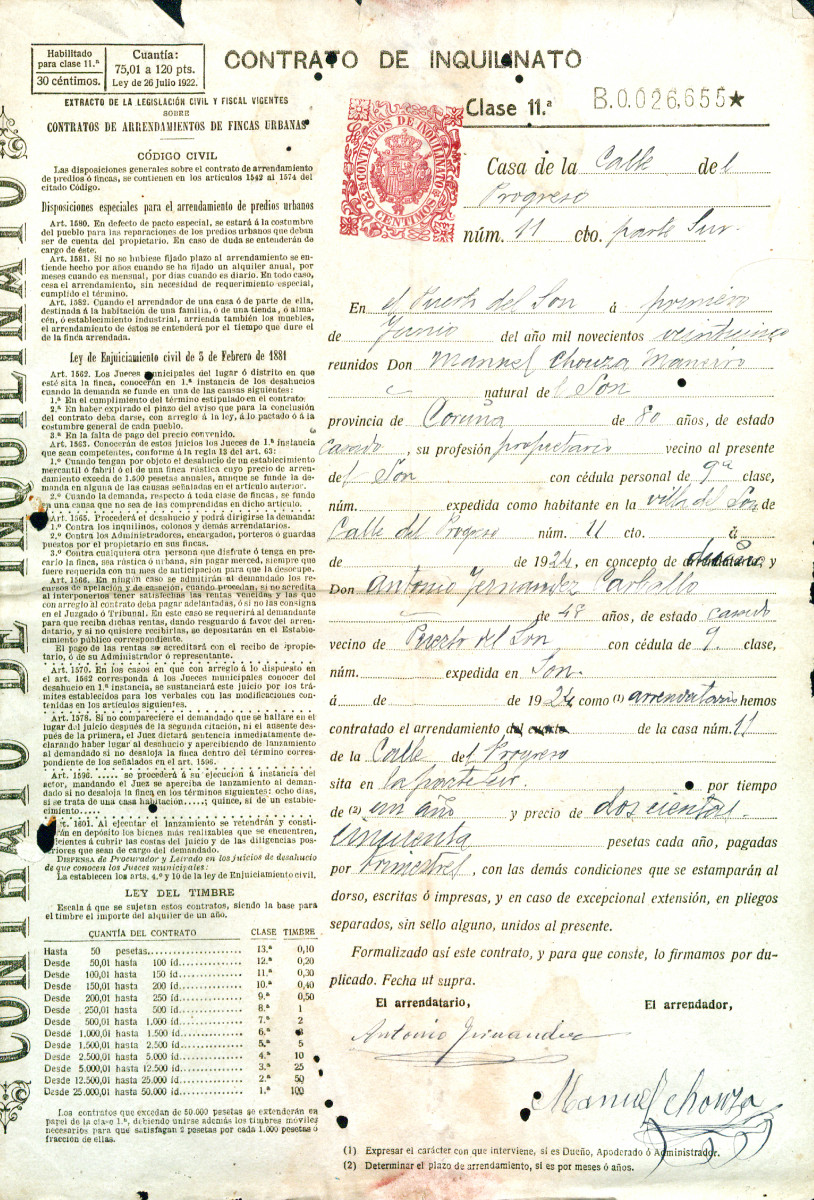 Habilitado
para clase 11.ª
30 céntimos.
Cuantía:
75,01 a 120 pts.
Ley de 26 Julio 1922.
CONTRATO DE INQUILINATO
EXTRACTO DE LA LEGISLACIÓN CIVIL Y FISCAL VIGENTES
SOBRE
CONTRATOS DE ARRENDAMIENTOS DE FINCAS URBANAS
CÓDIGO CIVIL
Las disposiciones generales sobre el contrato de arrendamiento
de predios ó fincas, se contienen en los artículos 1542 al 1574 del
citado Código.
Disposiciones especiales para el arrendamiento de predios urbanos
Art. 1580. En defecto de pacto especial, se estará á la costumbre
del pueblo para las reparaciones de los predios urbanos que deban
ser de cuenta del propietario. En caso de duda se entenderán de
cargo de éste.
Art. 1581. Si no se hubiese fijado plazo al arrendamiento se en-
tiende hecho por años cuando se ha fijado un alquiler anual, por
meses cuando es mensual, por días cuando es diario. En todo caso,
cesa el arrendamiento, sin necesidad de requerimiento especial,
cumplido el término.
Art. 1582. Cuando el arrendador de una casa ó de parte de ella,
destinada á la habitación de una familia, ó de una tienda, ó alma-
cén, ó establecimiento industrial, arrienda también los muebles,
el arrendamiento de éstos se entenderá por el tiempo que dure el
de la finca arrendada.
Ley de Enjuiciamiento civil de 3 de Febrero de 1881
Art. 1562. Los Jueces municipales del lugar ó distrito en que
esté sita la finca, conocerán en 1.ª instancia de los desahucios
cuando la demanda se funde en una de las causas siguientes:
1.ª En el cumplimiento del término estipulado en el contrato:
2.ª En haber expirado el plazo del aviso que para la conclusión
del contrato deba darse, con arreglo á la ley, á lo pactado ó á la
costumbre general de cada pueblo.
3.ª En la falta de pago del precio convenido.
Art. 1563. Conocerán de estos juicios los Jueces de 1.ª instancia
que sean competentes, conforme á la regla 13 del art. 63:
1.º Cuando tengan por objeto el desahucio de un establecimiento
mercantil ó fabril ó el de una finca rústica cuyo precio de arren-
damiento exceda de 1.500 pesetas anuales, aunque se funde la de-
manda en alguna de las causas señaladas en el artículo anterior.
2.º Cuando la demanda, respecto á toda clase de fincas, se funde
en una causa que no sea de las comprendidas en dicho artículo.
Art. 1565. Procederá el desahucio y podrá dirigirse la demanda:
1.º Contra los inquilinos, colonos y demás arrendatarios.
2.º Contra los Administradores, encargados, porteros ó guardas
puestos por el propietario en sus fincas.
3.º Contra cualquiera otra persona que disfrute ó tenga en pre-
cario la finca, sea rústica ó urbana, sin pagar merced, siempre que
fuere requerida con un mes de anticipación para que la desocupe.
Art. 1566. En ningún caso se admitirán al demandado los re-
cursos de apelación y de casación, cuando procedan, si no acredita
al interponerlos tener satisfechas las rentas vencidas y las que
con arreglo al contrato deba pagar adelantadas, ó si no las consigna
en el Juzgado ó Tribunal. En este caso se requerirá al demandante
para que reciba dichas rentas, dando resguardo á favor del arren-
datario, y si no quisiere recibirlas, se depositarán en el Estable-
cimiento público correspondiente.
El pago de las rentas se acreditará con el recibo de propie-
tario, ó de su Administrador ó representante.
Art. 1570. En los casos en que con arreglo á lo dispuesto en
el art. 1562 corresponda á los Jueces municipales conocer del
desahucio en 1.ª instancia, se sustanciará este juicio por los trá-
mites establecidos para los verbales con las modificaciones con-
tenidas en los artículos siguientes.
Art. 1578. Si no compareciere el demandado que se hallare en el
lugar del juicio después de la segunda citación, ni el ausente des-
pués de la primera, el Juez dictará sentencia inmediatamente de-
clarando haber lugar al desahucio y apercibiendo de lanzamiento
al demandado si no desaloja la finca dentro del término corres-
pondiente de los señalados en el art. 1596.
Art. 1596. ..... se procederá á su ejecución á instancia del
actor, mandando el Juez se aperciba de lanzamiento al deman-
dado si no desaloja la finca en los términos siguientes: ocho días,
si se trata de una casa habitación.....; quince, si de un estable-
cimiento.....
Art. 1601. Al ejecutar el lanzamiento se retendrán y consti-
tuirán en depósito los bienes más realizables que se encuentren,
suficientes á cubrir las costas del juicio y de las diligencias pos-
teriores que sean de cargo del demandado.
DISPENSA de Procurador y Letrado en los juicios de desahucio
de que conocen los Jueces municipales:
La establecen los arts. 4.º y 10 de la ley de Enjuiciamiento civil.
LEY DEL TIMBRE
Escala á que se sujetan estos contratos, siendo la base para
el timbre el importe del alquiler de un año.
CUANTÍA DEL CONTRATO CLASE TIMBRE
Hasta 50 pesetas 13.ª 0,10
Desde 50,01 hasta 100 id. 12.ª 0,20
Desde 100,01 hasta 150 id. 11.ª 0,30
Desde 150,01 hasta 200 id. 10.ª 0,40
Desde 200,01 hasta 250 id. 9.ª 0,50
Desde 250,01 hasta 500 id. 8.ª 1
Desde 500,01 hasta 1.000 id. 7.ª 2
Desde 1.000,01 hasta 1.500 id. 6.ª 3
Desde 1.500,01 hasta 2.500 id. 5.ª 5
Desde 2.500,01 hasta 5.000 id. 4.ª 10
Desde 5.000,01 hasta 12.500 id. 3.ª 25
Desde 12.500,01 hasta 25.000 id. 2.ª 50
Desde 25.000,01 hasta 50.000 id. 1.ª 100
Los contratos que excedan de 50.000 pesetas se extenderán en
papel de la clase 1.ª, debiendo unirse además los timbres móviles
necesarios para que satisfagan 2 pesetas por cada 1.000 pesetas ó
fracción de ellas.
CONTRATO DE INQUILINATO
CONTRATOS DE INQUILINATO
30 CENTIMOS
Clase 11.ª
B.0.026,655★
Casa de la Calle del
Progreso
núm. 11 cto. parte Sur.
En el Puerto del Son á primero
de Junio del año mil novecientos veinticinco
reunidos Don Manuel Chouza
natural del Son
provincia de Coruña de 80 años, de estado
casado, su profesión propietario vecino al presente
del Son con cédula personal de 9ª clase,
núm. expedida como habitante en la villa del Son de
Calle del Progreso núm. 11 cto. á
de de 1924, en concepto de dueño y
Don Antonio Fernandez Carballo
de 48 años, de estado casado
vecino de Puerto del Son con cédula de 9. clase,
núm. expedida en Son.
á de de 1924 como (1) arrendatario hemos
contratado el arrendamiento del cuarto de la casa núm. 11
de la Calle del Progreso
sita en la parte sur por tiempo
de (2) un año y precio de doscientas
cincuenta pesetas cada año, pagadas
por trimestres, con las demás condiciones que se estamparán al
dorso, escritas ó impresas, y en caso de excepcional extensión, en pliegos
separados, sin sello alguno, unidos al presente.
Formalizado así este contrato, y para que conste, lo firmamos por du-
plicado. Fecha ut supra.
El arrendatario,
El arrendador,
Antonio Fernandez
Manuel Chouza
(1) Expresar el carácter con que interviene, si es Dueño, Apoderado ó Administrador.
(2) Determinar el plazo de arrendamiento, si es por meses ó años.